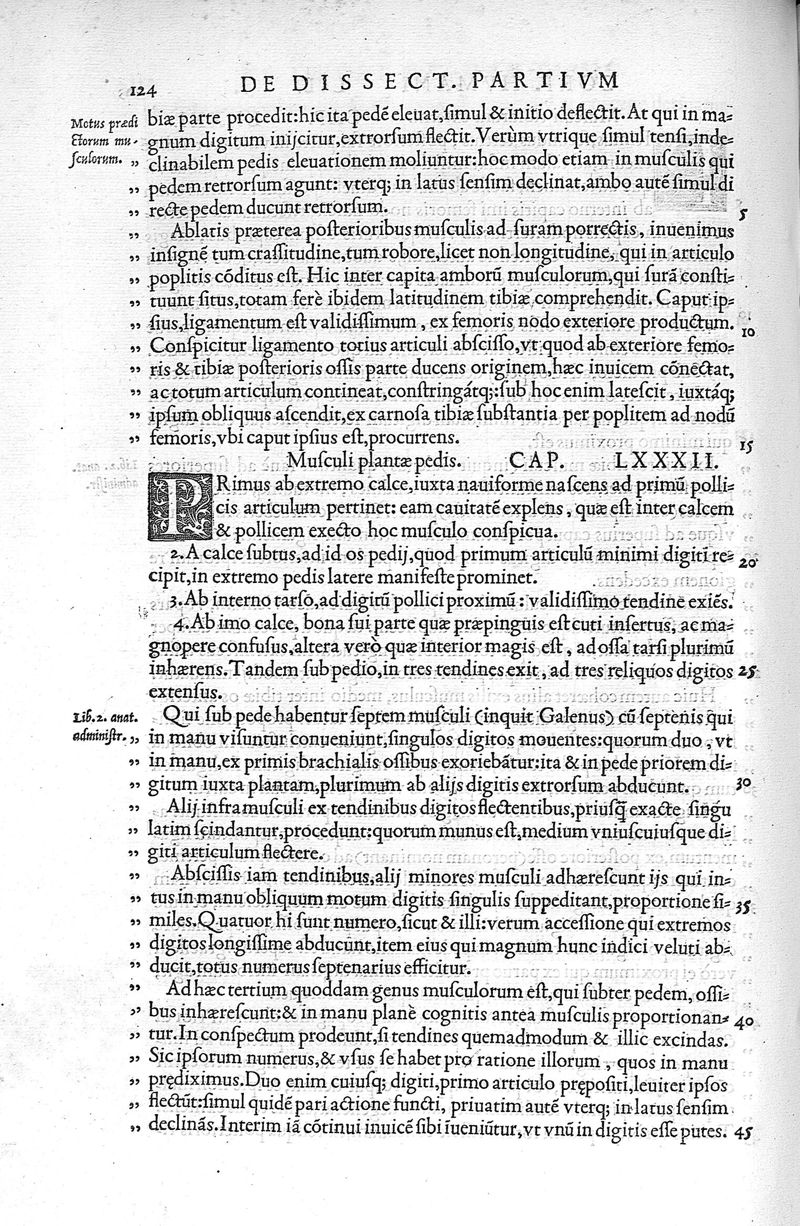 124 DE DISSECT. PARTIVM
Motus prædi
ctorum mu-
sculorum.
biæ parte procedit:hic ita pedē eleuat,simul & initio deflectit. At qui in ma-
gnum digitum inijcitur,extrorsum flectit. Verùm vtrique simul tensi,inde-
„ clinabilem pedis eleuationem moliuntur:hoc modo etiam in musculis qui
„ pedem retrorsum agunt: vterq; in latus sensim declinat,ambo autē simul di
„ recte pedem ducunt retrorsum. 5
„ Ablatis præterea posterioribus musculis ad suram porrectis, inuenimus
„ insignē tum crassitudine,tum robore, licet non longitudine, qui in articulo
„ poplitis cōditus est. Hic inter capita amborū musculorum,qui surā consti-
„ tuunt situs,totam ferè ibidem latitudinem tibiæ comprehendit. Caput ip-
„ sius,ligamentum est validissimum, ex femoris nodo exteriore productum. 10
„ Conspicitur ligamento totius articuli abscisso,vt quod ab exteriore femo-
„ ris & tibiæ posterioris ossis parte ducens originem,hæc inuicem cōnectat,
„ ac totum articulum contineat,constringátq;:sub hoc enim latescit, iuxtáq;
„ ipsum obliquus ascendit,ex carnosa tibiæ substantia per popliteм ad nodū
„ femoris,vbi caput ipsius est,procurrens. 15
Musculi plantæ pedis. CAP. LXXXII.
PRimus ab extremo calce,iuxta nauiforme nascens ad primū polli-
cis articulum pertinet: eam cauitatē explens, quæ est inter calcem
& pollicem execto hoc musculo conspicua.
2. A calce subtus,ad id os pedij,quod primum articulū minimi digiti re- 20
cipit,in extremo pedis latere manifeste prominet.
3. Ab interno tarso,ad digitū pollici proximū: validissimo tendine exiēs.
4. Ab imo calce, bona sui parte quæ præpinguis est cuti insertus, ac ma-
gnopere confusus,altera verò quæ interior magis est, ad ossa tarsi plurimū
inhærens. Tandem sub pedio,in tres tendines exit, ad tres reliquos digitos 25
extensus.
Lib. 2. anat.
administr.
Qui sub pede habentur septem musculi (inquit Galenus) cū septenis qui
„ in manu visuntur conueniunt,singulos digitos mouentes:quorum duo, vt
„ in manu,ex primis brachialis ossibus exoriebātur:ita & in pede priorem di-
„ gitum iuxta plantam,plurimum ab alijs digitis extrorsum abducunt. 30
„ Alij infra musculi ex tendinibus digitos flectentibus,priusq̃ exacte singu
„ latim scindantur,procedunt:quorum munus est,medium vniuscuiusque di-
„ giti articulum flectere.
„ Abscissis iam tendinibus,alij minores musculi adhærescunt ijs qui in-
„ tus in manu obliquum motum digitis singulis suppeditant,proportione si- 35
„ miles. Quatuor hi sunt numero,sicut & illi:verum accessione qui extremos
„ digitos longissime abducunt,item eius qui magnum hunc indici veluti ab-
„ ducit,totus numerus septenarius efficitur.
„ Ad hæc tertium quoddam genus musculorum est,qui subter pedem, ossi-
„ bus inhærescunt:& in manu planè cognitis antea musculis proportionan- 40
„ tur. In conspectum prodeunt,si tendines quemadmodum & illic excindas.
„ Sic ipsorum numerus,& vsus se habet pro ratione illorum, quos in manu
„ prędiximus. Duo enim cuiusq; digiti,primo articulo prępositi,leuiter ipsos
„ flectūt:simul quidē pari actione functi, priuatim autē vterq; in latus sensim
„ declinās. Interim iā cōtinui inuicē sibi iūeniūtur,vt vnū in digitis esse putes. 45